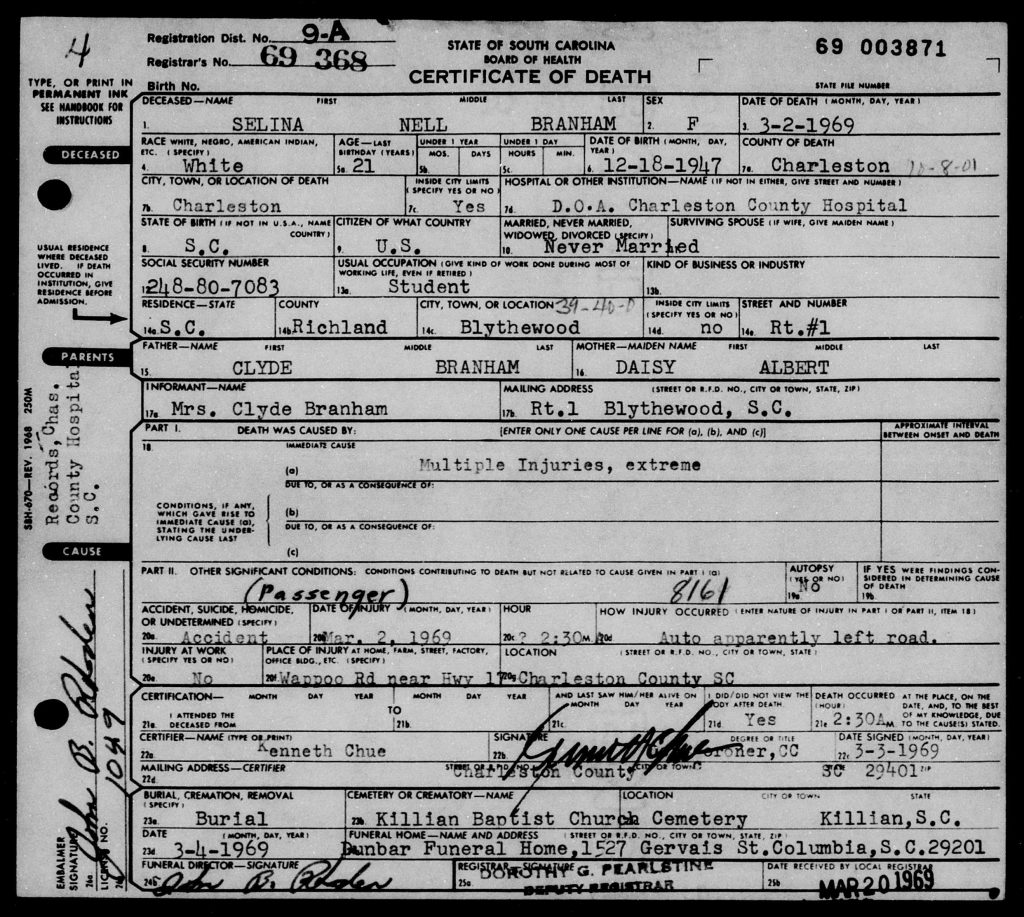 4
Registration Dist. No. 9-A
Registrar's No. 69 368
STATE OF SOUTH CAROLINA
BOARD OF HEALTH
CERTIFICATE OF DEATH
69 003871
STATE FILE NUMBER
TYPE, OR PRINT IN
PERMANENT INK
SEE HANDBOOK FOR
INSTRUCTIONS
Birth No.
DECEASED—NAME FIRST MIDDLE LAST SEX DATE OF DEATH (MONTH, DAY, YEAR)
1. SELINA NELL BRANHAM 2. F 3. 3-2-1969
DECEASED
RACE WHITE, NEGRO, AMERICAN INDIAN, ETC. (SPECIFY) AGE—LAST BIRTHDAY (YEARS) UNDER 1 YEAR MOS. DAYS UNDER 1 DAY HOURS MIN. DATE OF BIRTH (MONTH, DAY, YEAR) COUNTY OF DEATH
4. White 5a. 21 5b. 5c. 6. 12-18-1947 7a. Charleston
CITY, TOWN, OR LOCATION OF DEATH INSIDE CITY LIMITS (SPECIFY YES OR NO) HOSPITAL OR OTHER INSTITUTION—NAME (IF NOT IN EITHER, GIVE STREET AND NUMBER)
7b. Charleston 7c. Yes 7d. D.O.A. Charleston County Hospital
STATE OF BIRTH (IF NOT IN U.S.A., NAME COUNTRY) CITIZEN OF WHAT COUNTRY MARRIED, NEVER MARRIED, WIDOWED, DIVORCED (SPECIFY) SURVIVING SPOUSE (IF WIFE, GIVE MAIDEN NAME)
8. S.C. 9. U.S. 10. Never Married
USUAL RESIDENCE
WHERE DECEASED
LIVED. IF DEATH
OCCURRED IN
INSTITUTION, GIVE
RESIDENCE BEFORE
ADMISSION.
SOCIAL SECURITY NUMBER USUAL OCCUPATION (GIVE KIND OF WORK DONE DURING MOST OF WORKING LIFE, EVEN IF RETIRED) KIND OF BUSINESS OR INDUSTRY
12. 248-80-7083 13a. Student 13b.
RESIDENCE—STATE COUNTY CITY, TOWN, OR LOCATION 39-40-0 INSIDE CITY LIMITS (SPECIFY YES OR NO) STREET AND NUMBER
14a. S.C. 14b. Richland 14c. Blythewood 14d. no 14e. Rt.#1
PARENTS
FATHER—NAME FIRST MIDDLE LAST MOTHER—MAIDEN NAME FIRST MIDDLE LAST
15. CLYDE BRANHAM 16. DAISY ALBERT
INFORMANT—NAME MAILING ADDRESS (STREET OR R.F.D. NO., CITY OR TOWN, STATE, ZIP)
17a. Mrs. Clyde Branham 17b. Rt.1 Blythewood, S.C.
SBH-670—REV. 1968 250M
Records, Chas.
County Hospital
S.C.
PART I. DEATH WAS CAUSED BY: [ENTER ONLY ONE CAUSE PER LINE FOR (a), (b), AND (c)] APPROXIMATE INTERVAL BETWEEN ONSET AND DEATH
18 IMMEDIATE CAUSE
(a) Multiple Injuries, extreme
DUE TO, OR AS A CONSEQUENCE OF:
CONDITIONS, IF ANY,
WHICH GAVE RISE TO
IMMEDIATE CAUSE (a),
STATING THE UNDER-
LYING CAUSE LAST
(b)
DUE TO, OR AS A CONSEQUENCE OF:
(c)
CAUSE
PART II. OTHER SIGNIFICANT CONDITIONS: CONDITIONS CONTRIBUTING TO DEATH BUT NOT RELATED TO CAUSE GIVEN IN PART I (a) AUTOPSY (YES OR NO) IF YES WERE FINDINGS CONSIDERED IN DETERMINING CAUSE OF DEATH
(Passenger) 8161 19a. No 19b.
ACCIDENT, SUICIDE, HOMICIDE, OR UNDETERMINED (SPECIFY) DATE OF INJURY (MONTH, DAY, YEAR) HOUR HOW INJURY OCCURRED (ENTER NATURE OF INJURY IN PART I OR PART II, ITEM 18)
20a. Accident 20b. Mar. 2, 1969 20c. ? 2:30M 20d. Auto apparently left road.
INJURY AT WORK (SPECIFY YES OR NO) PLACE OF INJURY AT HOME, FARM, STREET, FACTORY, OFFICE BLDG., ETC. (SPECIFY) LOCATION (STREET OR R.F.D. NO., CITY OR TOWN, STATE)
20e. No 20f. Wappoo Rd near Hwy 17 20g. Charleston County SC
CERTIFICATION— MONTH DAY YEAR MONTH DAY YEAR AND LAST SAW HIM/HER ALIVE ON MONTH DAY YEAR I DID/DID NOT VIEW THE BODY AFTER DEATH. DEATH OCCURRED (HOUR) AT THE PLACE, ON THE DATE, AND, TO THE BEST OF MY KNOWLEDGE, DUE TO THE CAUSE(S) STATED.
21a. I ATTENDED THE DECEASED FROM TO 21b. 21c. 21d. Yes 21e. 2:30AM
CERTIFIER—NAME (TYPE OR PRINT) SIGNATURE DEGREE OR TITLE DATE SIGNED (MONTH, DAY, YEAR)
22a. Kenneth Chue 22b. Coroner, CC 22c. 3-3-1969
MAILING ADDRESS—CERTIFIER STREET OR R.F.D. NO. CITY OR TOWN STATE ZIP
22d. Charleston County SC 29401
BURIAL, CREMATION, REMOVAL (SPECIFY) CEMETERY OR CREMATORY—NAME LOCATION CITY OR TOWN STATE
23a. Burial 23b. Killian Baptist Church Cemetery Killian, S.C.
DATE (MONTH, DAY, YEAR) FUNERAL HOME—NAME AND ADDRESS (STREET OR R.F.D. NO., CITY OR TOWN, STATE, ZIP)
23d. 3-4-1969 Dunbar Funeral Home, 1527 Gervais St. Columbia, S.C. 29201
FUNERAL DIRECTOR—SIGNATURE REGISTRAR—SIGNATURE DATE RECEIVED BY LOCAL REGISTRAR
24b. John B. Rhoden 25a. DOROTHY G. PEARLSTINE 25b. MAR 20 1969
DEPUTY REGISTRAR
EMBALMER
SIGNATURE John B. Rhoden
24a.
LICENSE NO. 1049